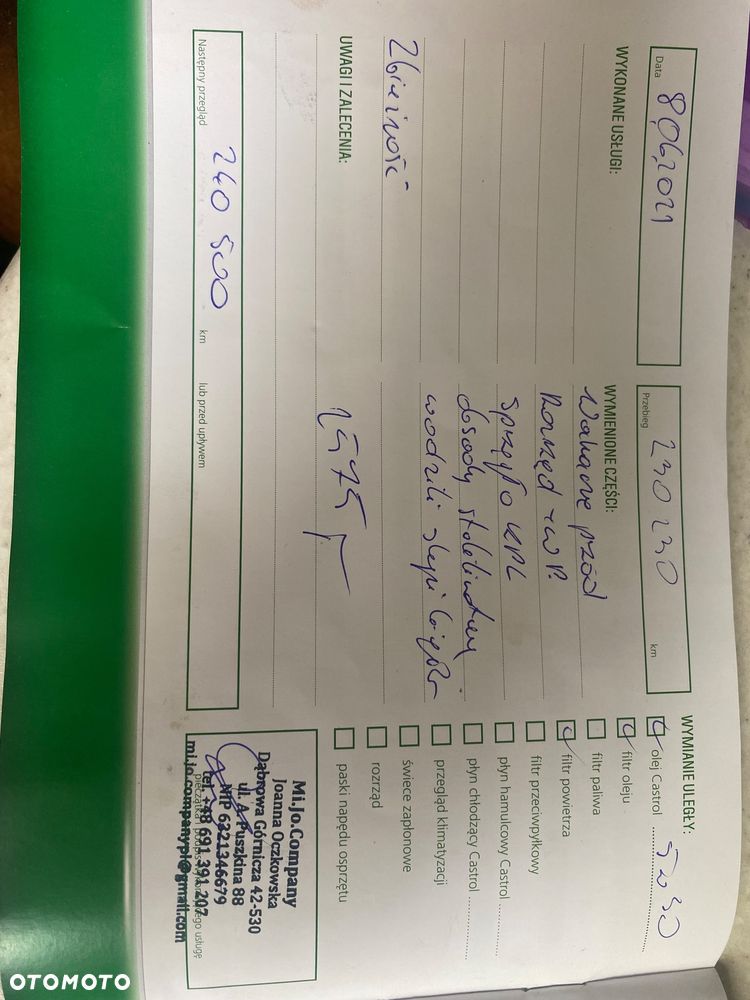 Data
8.06.2021
Przebieg
230 230
km
WYKONANE USŁUGI:
Zbieżność
UWAGI I ZALECENIA:
WYMIENIONE CZĘŚCI:
Wahacze przód
Rozrząd + w P.
Sprzęgło kpl
1575
Następny przegląd
240 500
km
lub przed upływem
WYMIANIE ULEGŁY:
olej Castrol 5w30
filtr oleju
filtr paliwa
filtr powietrza
filtr przeciwpyłkowy
płyn hamulcowy Castrol
płyn chłodzący Castrol
przegląd klimatyzacji
świece zapłonowe
rozrząd
paski napędu osprzętu
Mi.Jo.Company
Joanna Oczkowska
Dąbrowa Górnicza 42-530
ul. A. Puszkina 88
NIP 6321346679
tel. +48 691 391 207
mi.jo.companypl@gmail.com
OTOMOTO